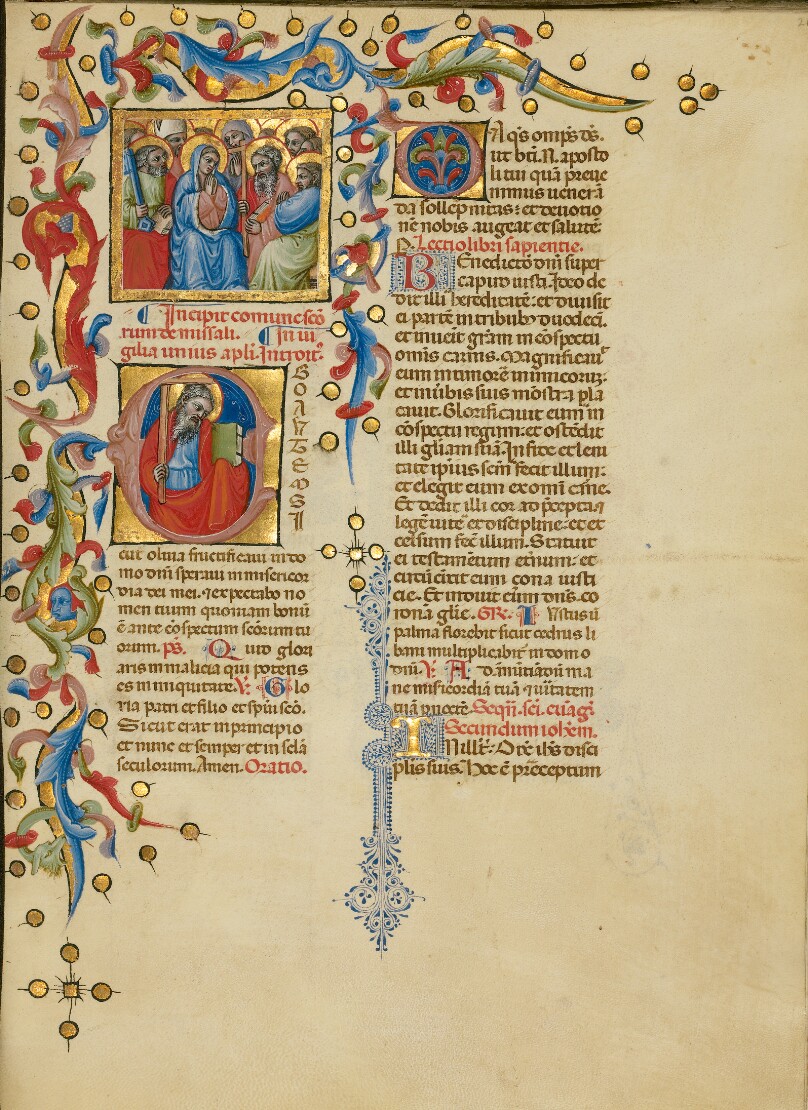 Incipit comune sco
rum de missali. In ui
gilia unius apli. Introit'
EGO AUTEM SI
cut oliua fructificaui in do
mo dni speraui in misericor
dia dei mei. et expectabo no
men tuum quoniam bonu
e ante cospectum scorum tu
orum. ps. Quid glori
aris in malicia qui potens
es in iniquitate. V. Glo
ria patri et filio et spiui sco.
Sicut erat in principio
et nunc et semper et in scla
seculorum. Amen. Oratio.
DA qs omps ds.
ut bti. N. aposto
li tui qua preue
nimus uenera
da sollepnitas: et deuotio
ne nobis augeat et salute
Lectio libri sapientie.
BEnedicto dni super
caput iusti. Ideo de
dit illi hereditate: et diuisit
ei parte in tribub duodeci.
et inueit gram in cospectu
omis carnis. Magnificau
eum in timore inimicorum:
et in uibis suis mostra pla
cauit. Glorificauit eum in
cospectu regum: et ostedit
illi gliam sua. In fide et leni
tate ipius scm fecit illum:
et elegit eum ex omi carne.
Et dedit illi cor ad precepta
lege uite et discipline: et ex
celsum fec illum. Statuit
ei testamentum eternum: et
circucixit eum zona iusti
cie. Et induit eum dns. co
rona glie. GR. Iustus u
palma florebit sicut cedrus li
bani multiplicabit in domo
dni. V. Ad anutiadu ma
ne misericordia tua et uitatem
tua p nocte. Seqn. sci. euagl.
Secundum iohem.
IN illo t. Dix ihs disci
plis suis. Hoc e preceptum